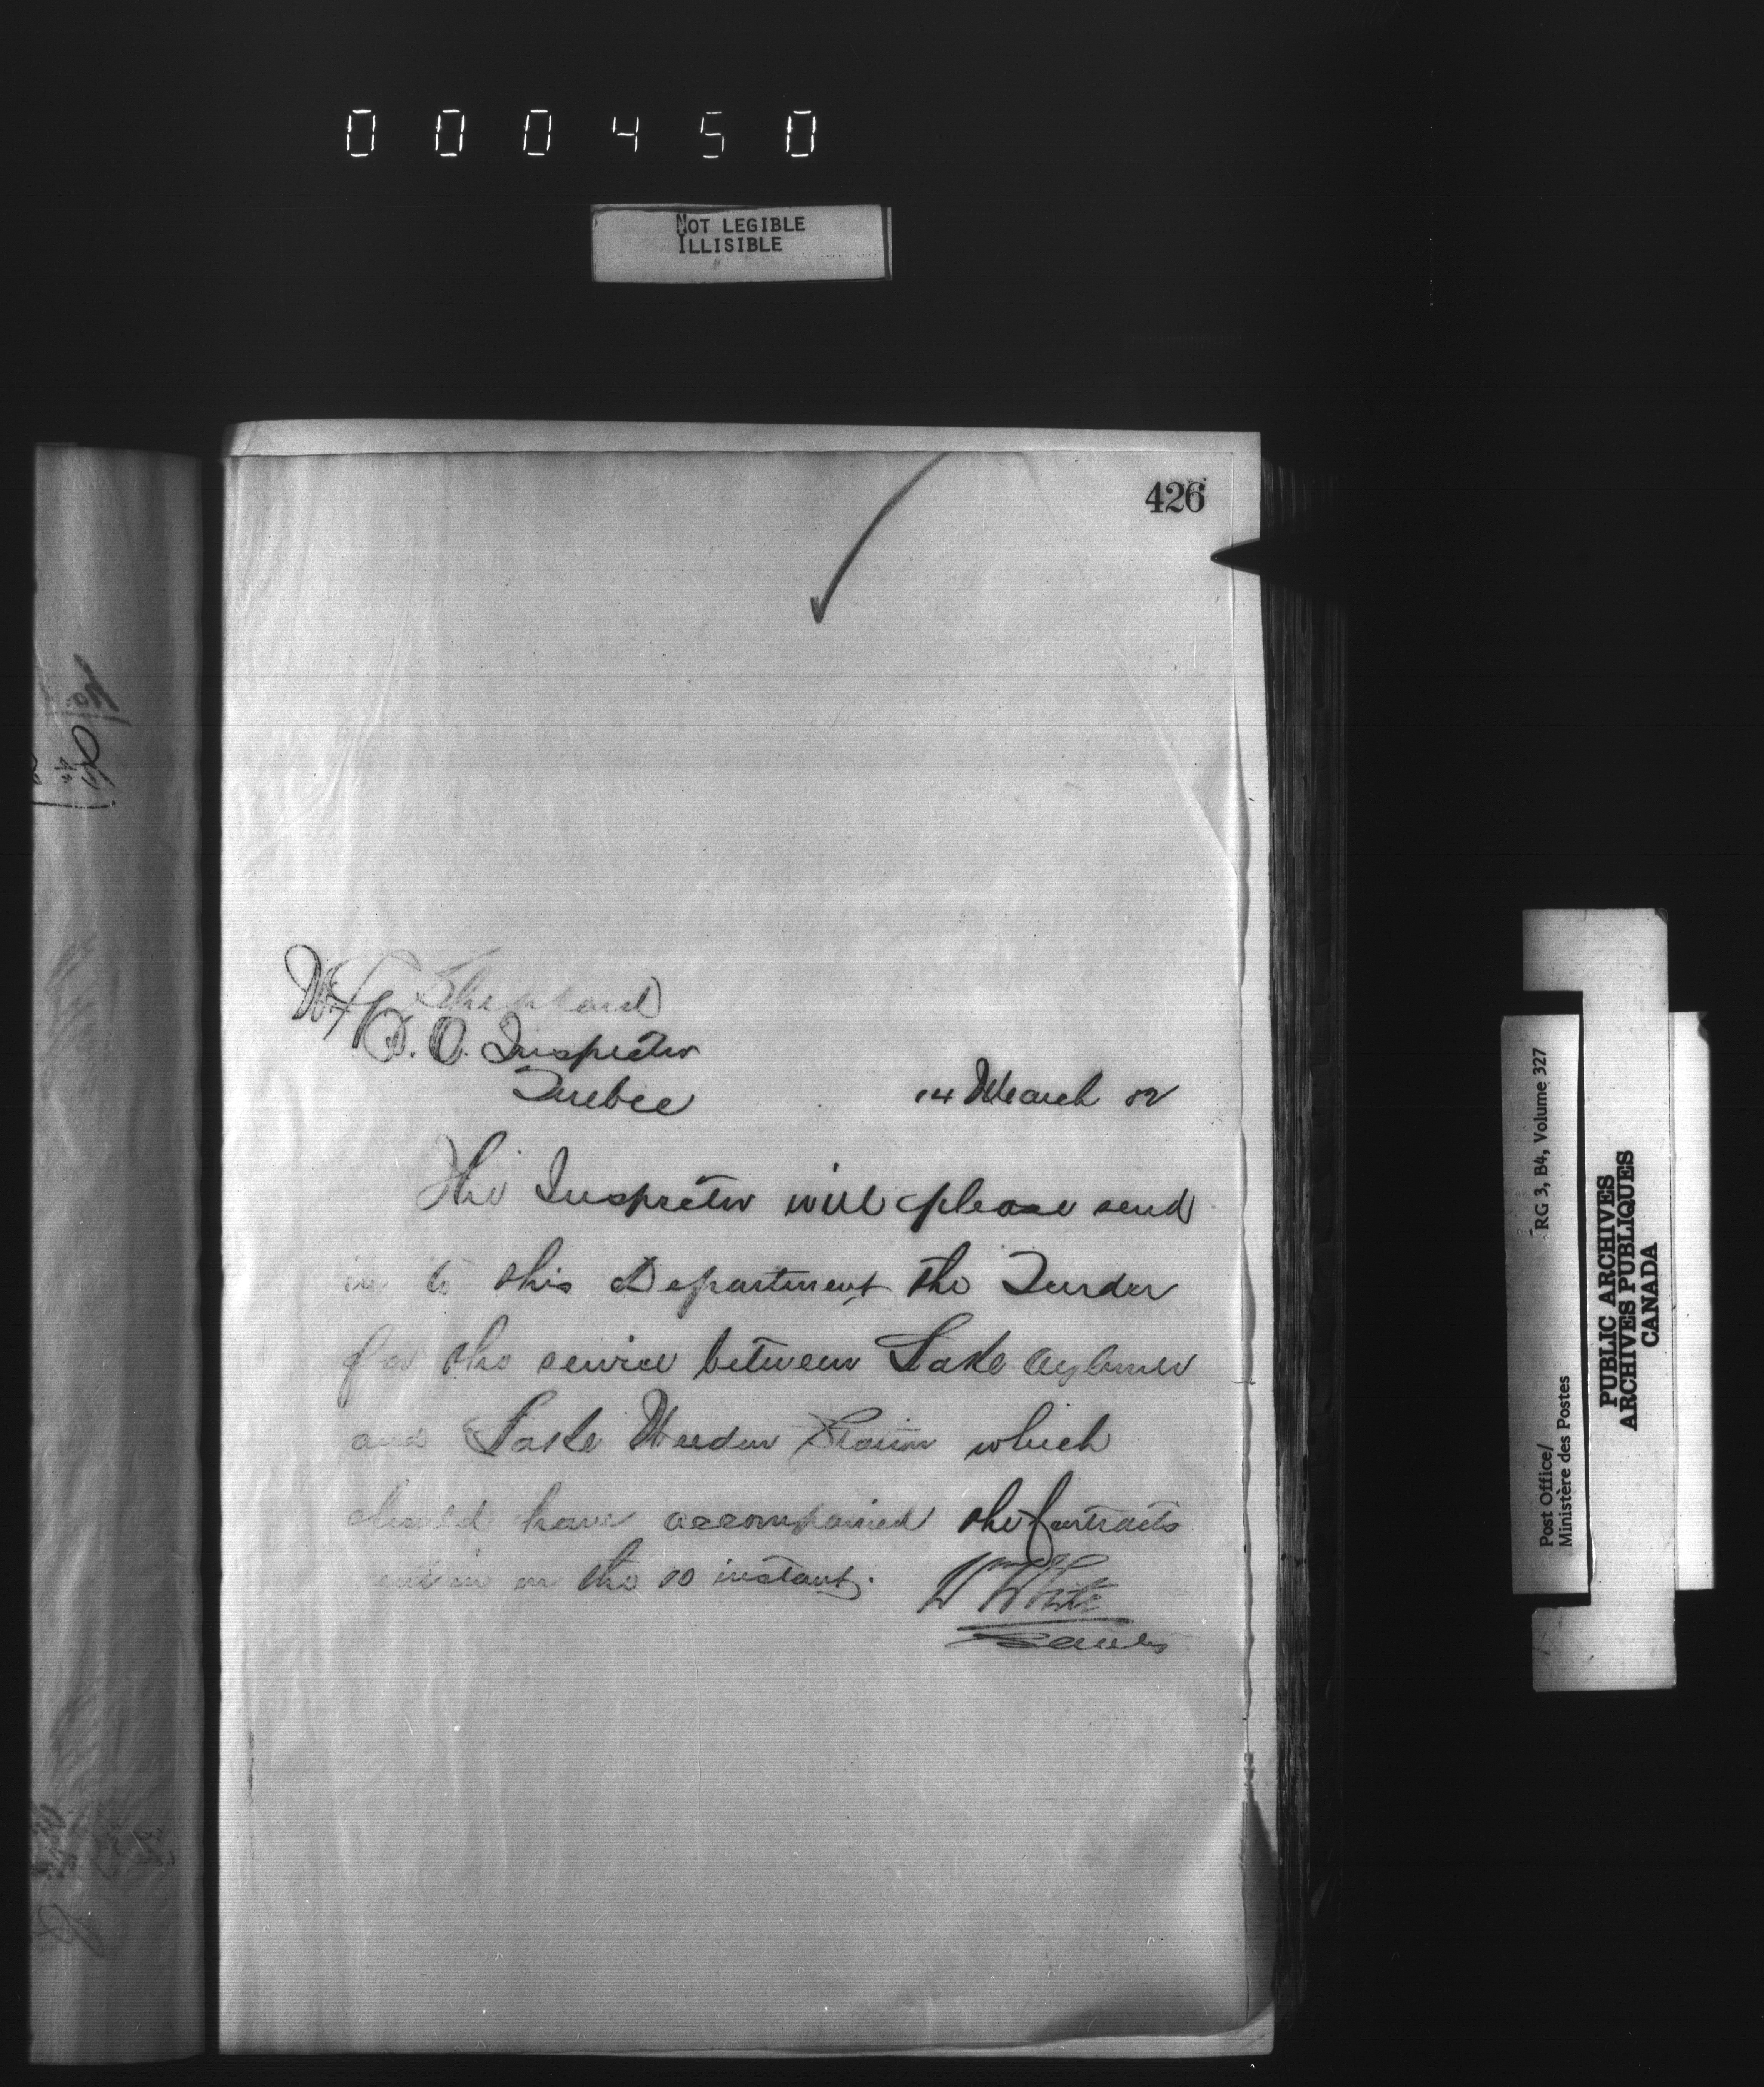 000450
NOT LEGIBLE
ILLISIBLE
426
W. G. Sheppard
P. O. Inspector
Quebec
14 March 82
The Inspector will please send
in to this Department the Tender
for the service between Lake Aylmer
and Lake Weedon Station which
should have accompanied the Contracts
sent in on the 10 instant.
W White
Secretary
RG 3, B4, Volume 327
Post Office/
Ministère des Postes
PUBLIC ARCHIVES
ARCHIVES PUBLIQUES
CANADA